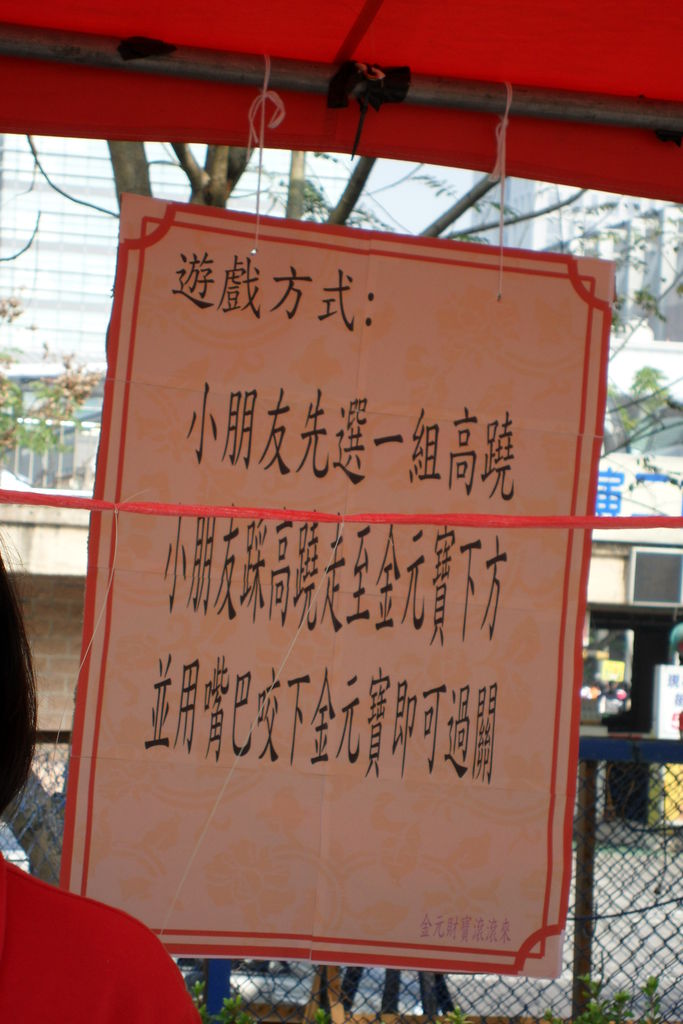 遊戲方式：
小朋友先選一組高蹺
小朋友踩高蹺走至金元寶下方
並用嘴巴咬下金元寶即可過關
金元財寶滾滾來